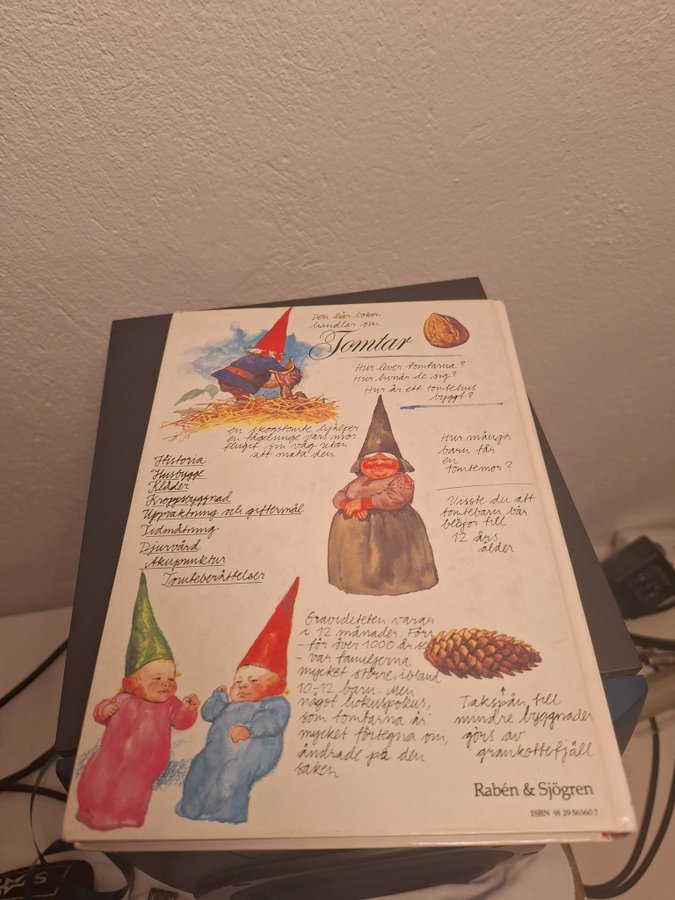 Den här boken
handlar om
Tomtar
Hur lever tomtarna?
Hur klär de sig?
Hur är ett tomtehus
byggt?
en skogstomte hjälper
en fågelunge vars mor
flugit sin väg utan
att mata den
Historia
Husbygge
Kläder
Kroppsbyggnad
Uppvaktning och giftermål
Tidmätning
Djurvård
Akupunktur
Tomteberättelser
Hur många
barn får
en
tomtemor?
Visste du att
tomtebarn bär
blöjor till
12 års
ålder
Graviditeten varar
i 12 månader. Förr
- för över 1000 år se
- var familjerna
mycket större, ibland
10-12 barn. Men
något hokuspokus,
som tomtarna är
mycket förtegna om,
ändrade på den
saken
Takspån till
mindre byggnader
görs av
grankottefjäll
Rabén & Sjögren
ISBN 91 29